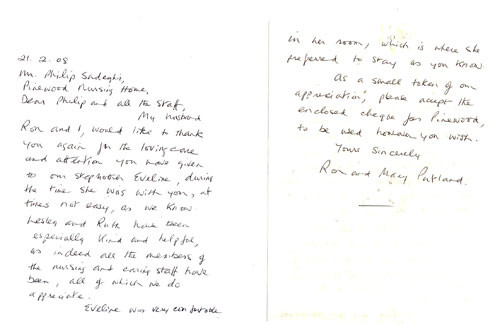 21. 2. 08
Mr. Philip Sadeghi,
Pinewood Nursing Home,
Dear Philip and all the Staff,
My husband
Ron and I, would like to thank
you again for the loving care
and attention you have given
to our stepmother Eveline, during
the time she was with you, at
times not easy, as we know
Lesley and Ruth have been
especially kind and helpful,
as indeed all the members of
the nursing and caring staff have
been, all of which we do
appreciate.
Eveline was very comfortable
in her room, which is where she
preferred to stay as you know.
As a small token of our
appreciation, please accept the
enclosed cheque for Pinewood,
to be used however you wish.
Yours Sincerely
Ron and Mary